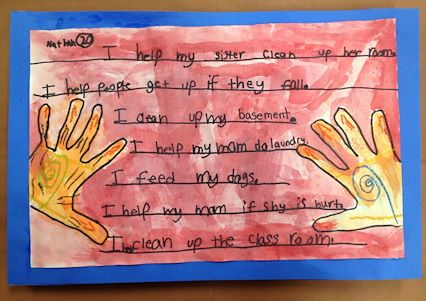 Nathan 20
I help my sister clean up her room.
I help people get up if they fall.
I clean up my basement.
I help my mom do laundry.
I feed my dogs.
I help my mom if shy is hurt.
I help clean up the class room.